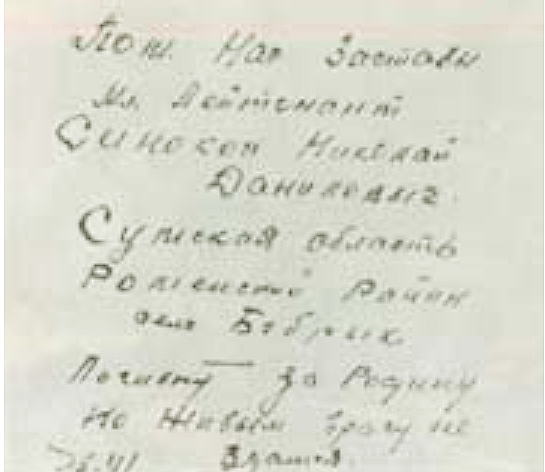 Пом. Нач Заставы
Мл. Лейтенант
Синокоп Николай
Данилович.
Сумская область
Роменский Район
село Бобрык
Погибну за Родину
но Живым врагу не
Сдамся.